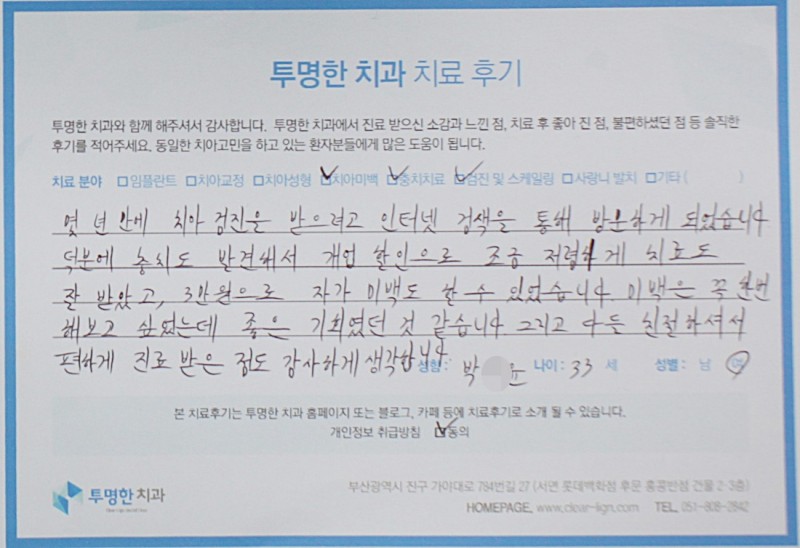 투명한 치과 치료 후기
투명한 치과와 함께 해주셔서 감사합니다. 투명한 치과에서 진료 받으신 소감과 느낀 점, 치료 후 좋아 진 점, 불편하셨던 점 등 솔직한
후기를 적어주세요. 동일한 치아고민을 하고 있는 환자분들에게 많은 도움이 됩니다.
치료 분야 □임플란트 □치아교정 □치아성형 ☑치아미백 ☑충치치료 ☑검진 및 스케일링 □사랑니 발치 □기타 ( )
몇 년 만에 치아 검진을 받으려고 인터넷 검색을 통해 방문하게 되었습니다
덕분에 충치도 발견해서 개업 할인으로 조금 저렴하게 치료도
잘 받았고, 3만원으로 자가 미백도 할 수 있었습니다 미백은 꼭 한번
해보고 싶었는데 좋은 기회였던 것 같습니다 그리고 다들 친절하셔서
편하게 진료 받은 점도 감사하게 생각합니다
성함: 박 윤 나이: 33 세 성별: 남 여
본 치료후기는 투명한 치과 홈페이지 또는 블로그, 카페 등에 치료후기로 소개 될 수 있습니다.
개인정보 취급방침 ☑동의
투명한 치과
부산광역시 진구 가야대로 784번길 27 (서면 롯데백화점 후문 홍콩반점 건물 2-3층)
HOMEPAGE. www.clear-lign.com TEL. 051-808-2842